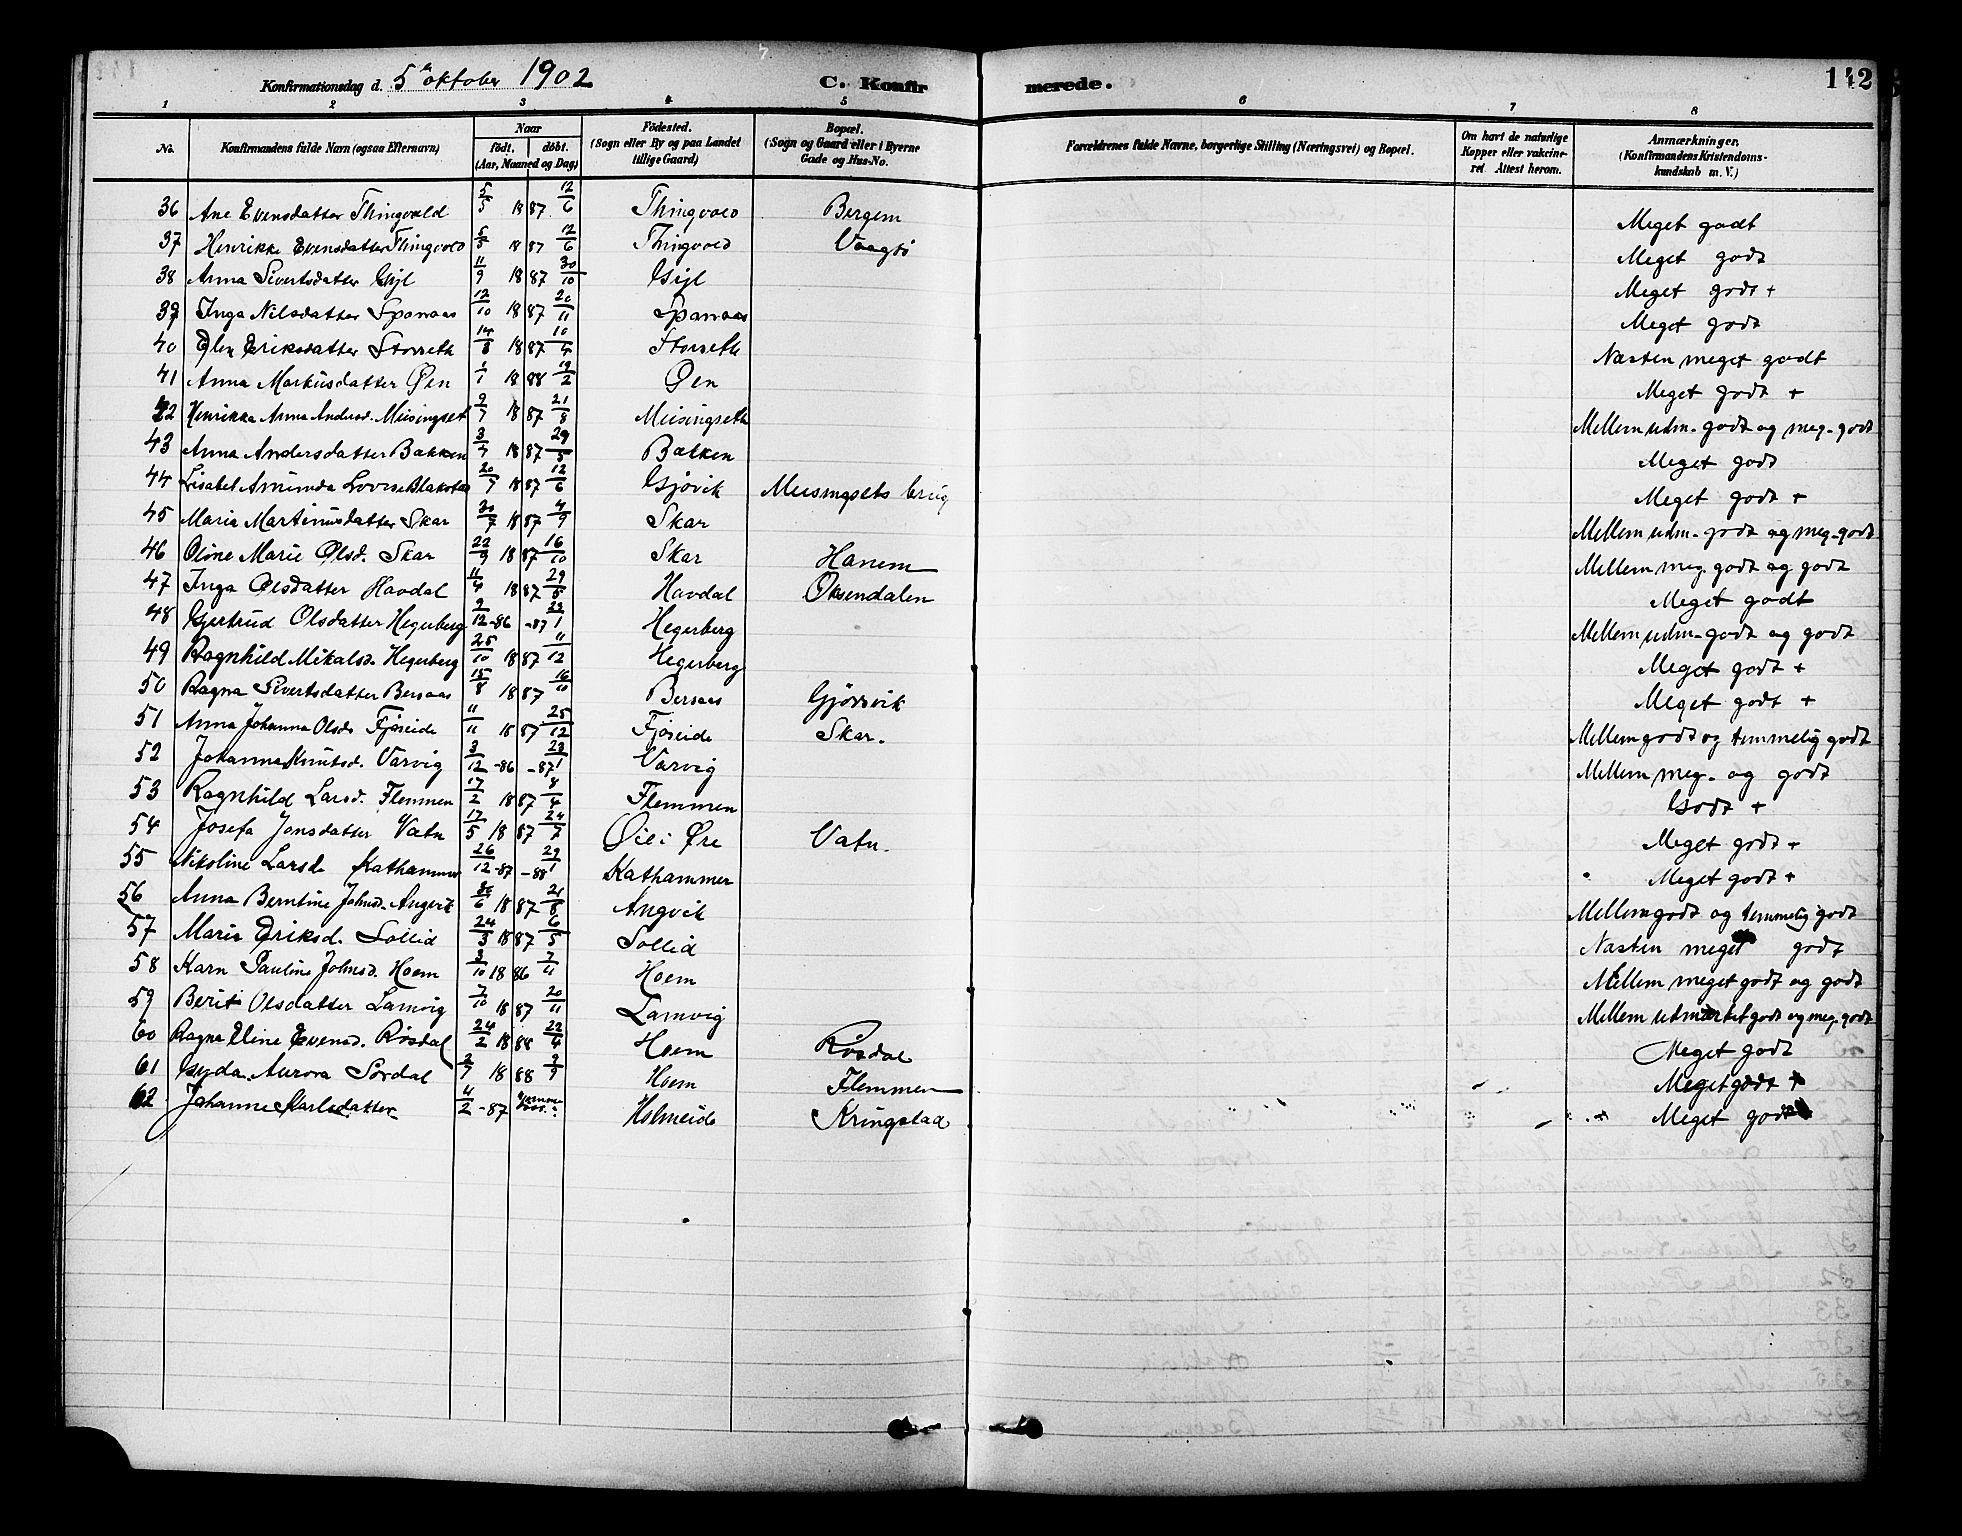 Konfirmationsdag d. 5te oktober 1902 C. Konfirmerede. 142
1 2 3 4 5 6 7 8
No. Konfirmandens fulde Navn (ogsaa Efternavn) Naar födt. döbt. (Aar, Maaned og Dag) Födested. (Sogn eller By og paa Landet tillige Gaard) Bopæl. (Sogn og Gaard eller i Byerne Gade og Hus-No. Forældrenes fulde Navne, borgerlige Stilling (Næringsvei) og Bopæl. Om havt de naturlige Kopper eller vakcineret Attest herom. Anmærkninger. (Konfirmandens Kristendomskundskab m. V.)
36 Ane Evensdatter Thingvold 5/5 1887 12/6 Thingvold Bergem Meget godt
37 Henrikke Evensdatter Thingvold 5/5 1887 12/6 Thingvold Vaagbö Meget godt
38 Anna Sivertsdatter Gyl 11/9 1887 30/10 Gyl Meget godt +
39 Inga Nilsdatter Spanaas 12/10 1887 20/11 Spanaas Meget godt
40 Elen Eriksdatter Storseth 14/3 1887 10/4 Storseth Næsten meget godt
41 Anna Markusdatter Øen 1/1 1888 19/2 Øen Meget godt +
42 Henrikka Anna Andersd. Meisingset 2/7 1887 21/8 Meisingseth Mellem udm. godt og meg. godt
43 Anna Andersdatter Bakken 3/4 1887 29/5 Bakken Meget godt
44 Lisabet Amunda Lovise Blakstad 20/7 1887 12/6 Gjövik Meisingsets brug Meget godt +
45 Maria Martinusdatter Skar 30/7 1887 4/9 Skar Mellem udm. godt og meg. godt
46 Oline Marie Olsd. Skar 22/9 1887 16/10 Skar Hanem Mellem meg. godt og godt
47 Inga Olsdatter Havdal 11/4 1887 29/5 Havdal Øksendalen Meget godt
48 Gjertrud Olsdatter Hegerberg 9/12 -86 -87 23/1 Hegerberg Mellem udm. godt og godt
49 Ragnhild Mikalsd. Hegerberg 25/10 1887 11/12 Hegerberg Meget godt +
50 Ragna Sivertsdatter Bersaas 15/8 1887 16/10 Bersaas Gjörsvik Meget godt +
51 Anna Johanna Olsd. Fjöseide 11/11 1887 25/12 Fjöseide Skar. Mellem godt og temmelig godt
52 Johanna Knutsd. Varvig 3/12 -86 -87 23/1 Varvig Mellem meg. og godt
53 Ragnhild Larsd. Flemmen 17/2 1887 8/4 Flemmen Godt +
54 Josefa Jonsdatter Vatn 17/5 1887 24/7 Øie i Øre Vatn. Meget godt +
55 Nikoline Larsd. Kathammer 26/12 -87 -88 29/1 Kathammer Meget godt +
56 Anna Berntine Johnsd. Angvik 30/6 1887 21/8 Angvik Mellem godt og temmelig godt
57 Marie Eriksd. Sollid 24/3 1887 6/5 Sollid Næsten meget godt
58 Karn Pauline Johnsd. Hoem 3/10 1886 7/11 Hoem Mellem meget godt og godt
59 Berit Olsdatter Lamvig 7/10 1887 20/11 Lamvig Mellem udmærket godt og meg. godt
60 Ragna Eline Evensd. Rösdal 24/2 1888 22/4 Hoem Rösdal Meget godt
61 Gyda Aurora Sördal 2/7 1888 2/9 Hoem Flemmen Meget godt +
62 Johanne Karlsdatter 11/2 -87 Holmeide Kringstad Meget godt